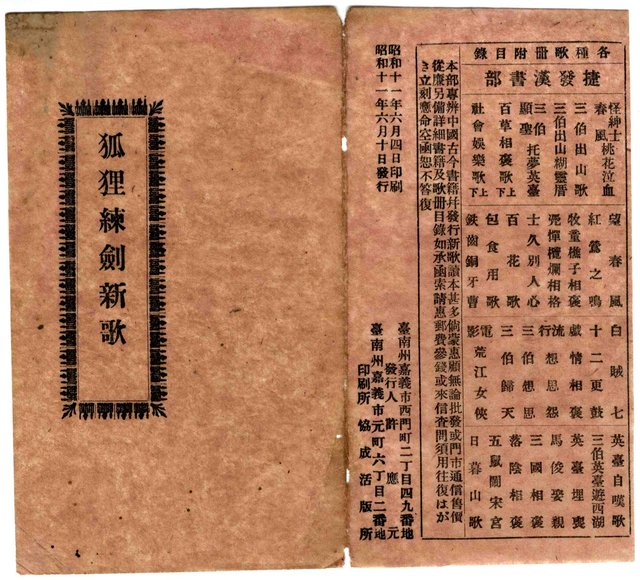 錄目附册歌種各
部書漢發捷
怪紳士桃花泣血
春風
三伯出山歌
三伯出山糊靈厝
三伯顯聖托夢英臺
百草相褒歌上下
社會娛樂歌上下
望春風
紅鶯之鳴
牧童樵子相褒
欖爛相格
士久別人心
百花歌
包食用歌
鉄齒銅牙曹
白賊七
十二更鼓
戲情相褒
流行想思怨
三伯想思
三伯歸天
電影荒江女俠
英臺自嘆歌
三伯英臺遊西湖
英臺埋喪
馬俊娶親
三國相褒
落陰相褒
五鼠鬧宋宮
日暮山歌
本部專辨中國古今書籍幷發行新歌讀本甚多倘蒙惠顧無論批發或門市通信售價
從廉另備詳細書籍及歌册目錄如承函索請惠郵費參錢或來信查問須用往復はが
き立刻應命空函恕不答復
昭和十一年六月四日印刷
昭和十一年六月十日發行
臺南州嘉義市西門町二丁目四九番地
發行人 許應元
臺南州嘉義市元町六丁目二番地
印刷所 協成活版所
狐狸練劍新歌